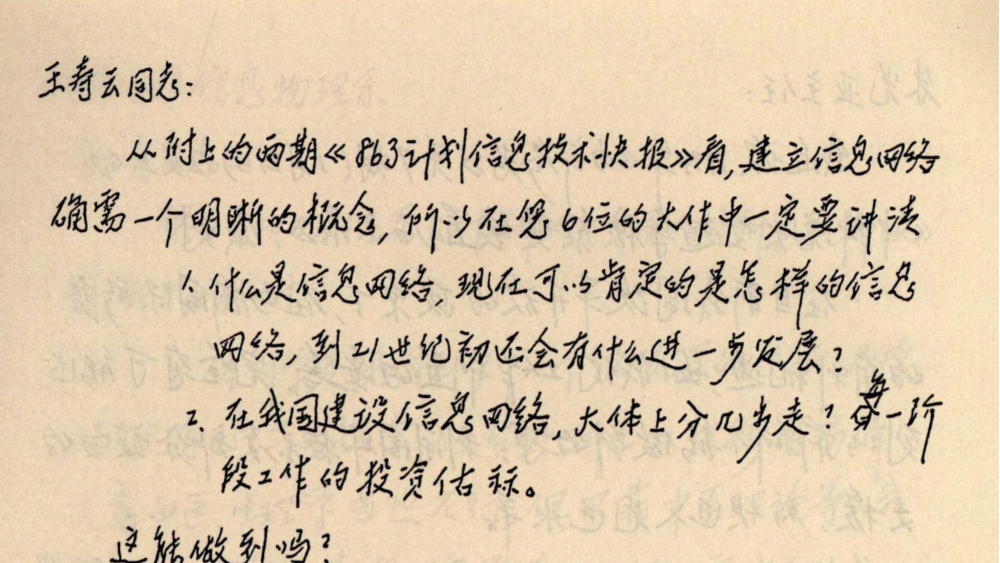 王寿云同志：
从附上的两期《863计划信息技术快报》看，建立信息网络
确需一个明晰的概念，所以在您6位的大作中一定要讲清
1. 什么是信息网络，现在可以肯定的是怎样的信息
网络，到21世纪初还会有什么进一步发展？
2. 在我国建设信息网络，大体上分几步走？每一阶
段工作的投资估标。
这能做到吗？